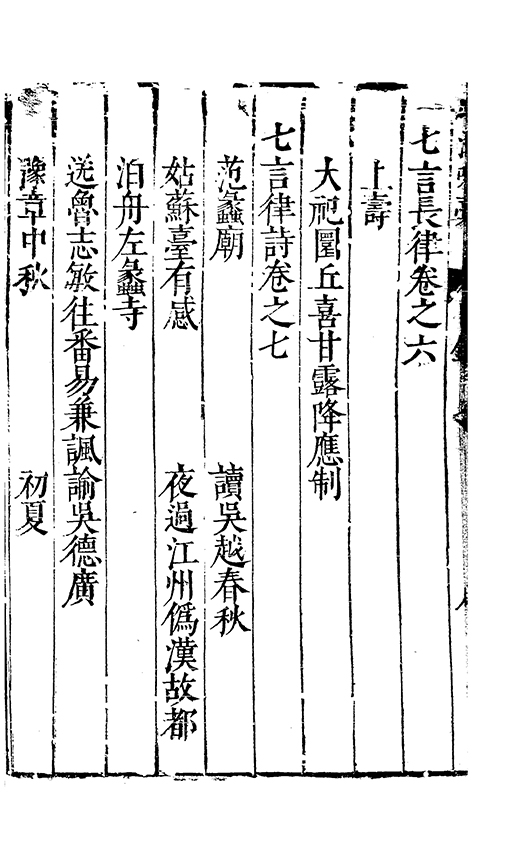 七言長律卷之六
上壽
大祀圜丘喜甘露降應制
七言律詩卷之七
范蠡廟 讀吳越春秋
姑蘇臺有感 夜過江州僞漢故都
泊舟左蠡寺
送魯志敏往番易兼諷諭吳德廣
豫章中秋 初夏